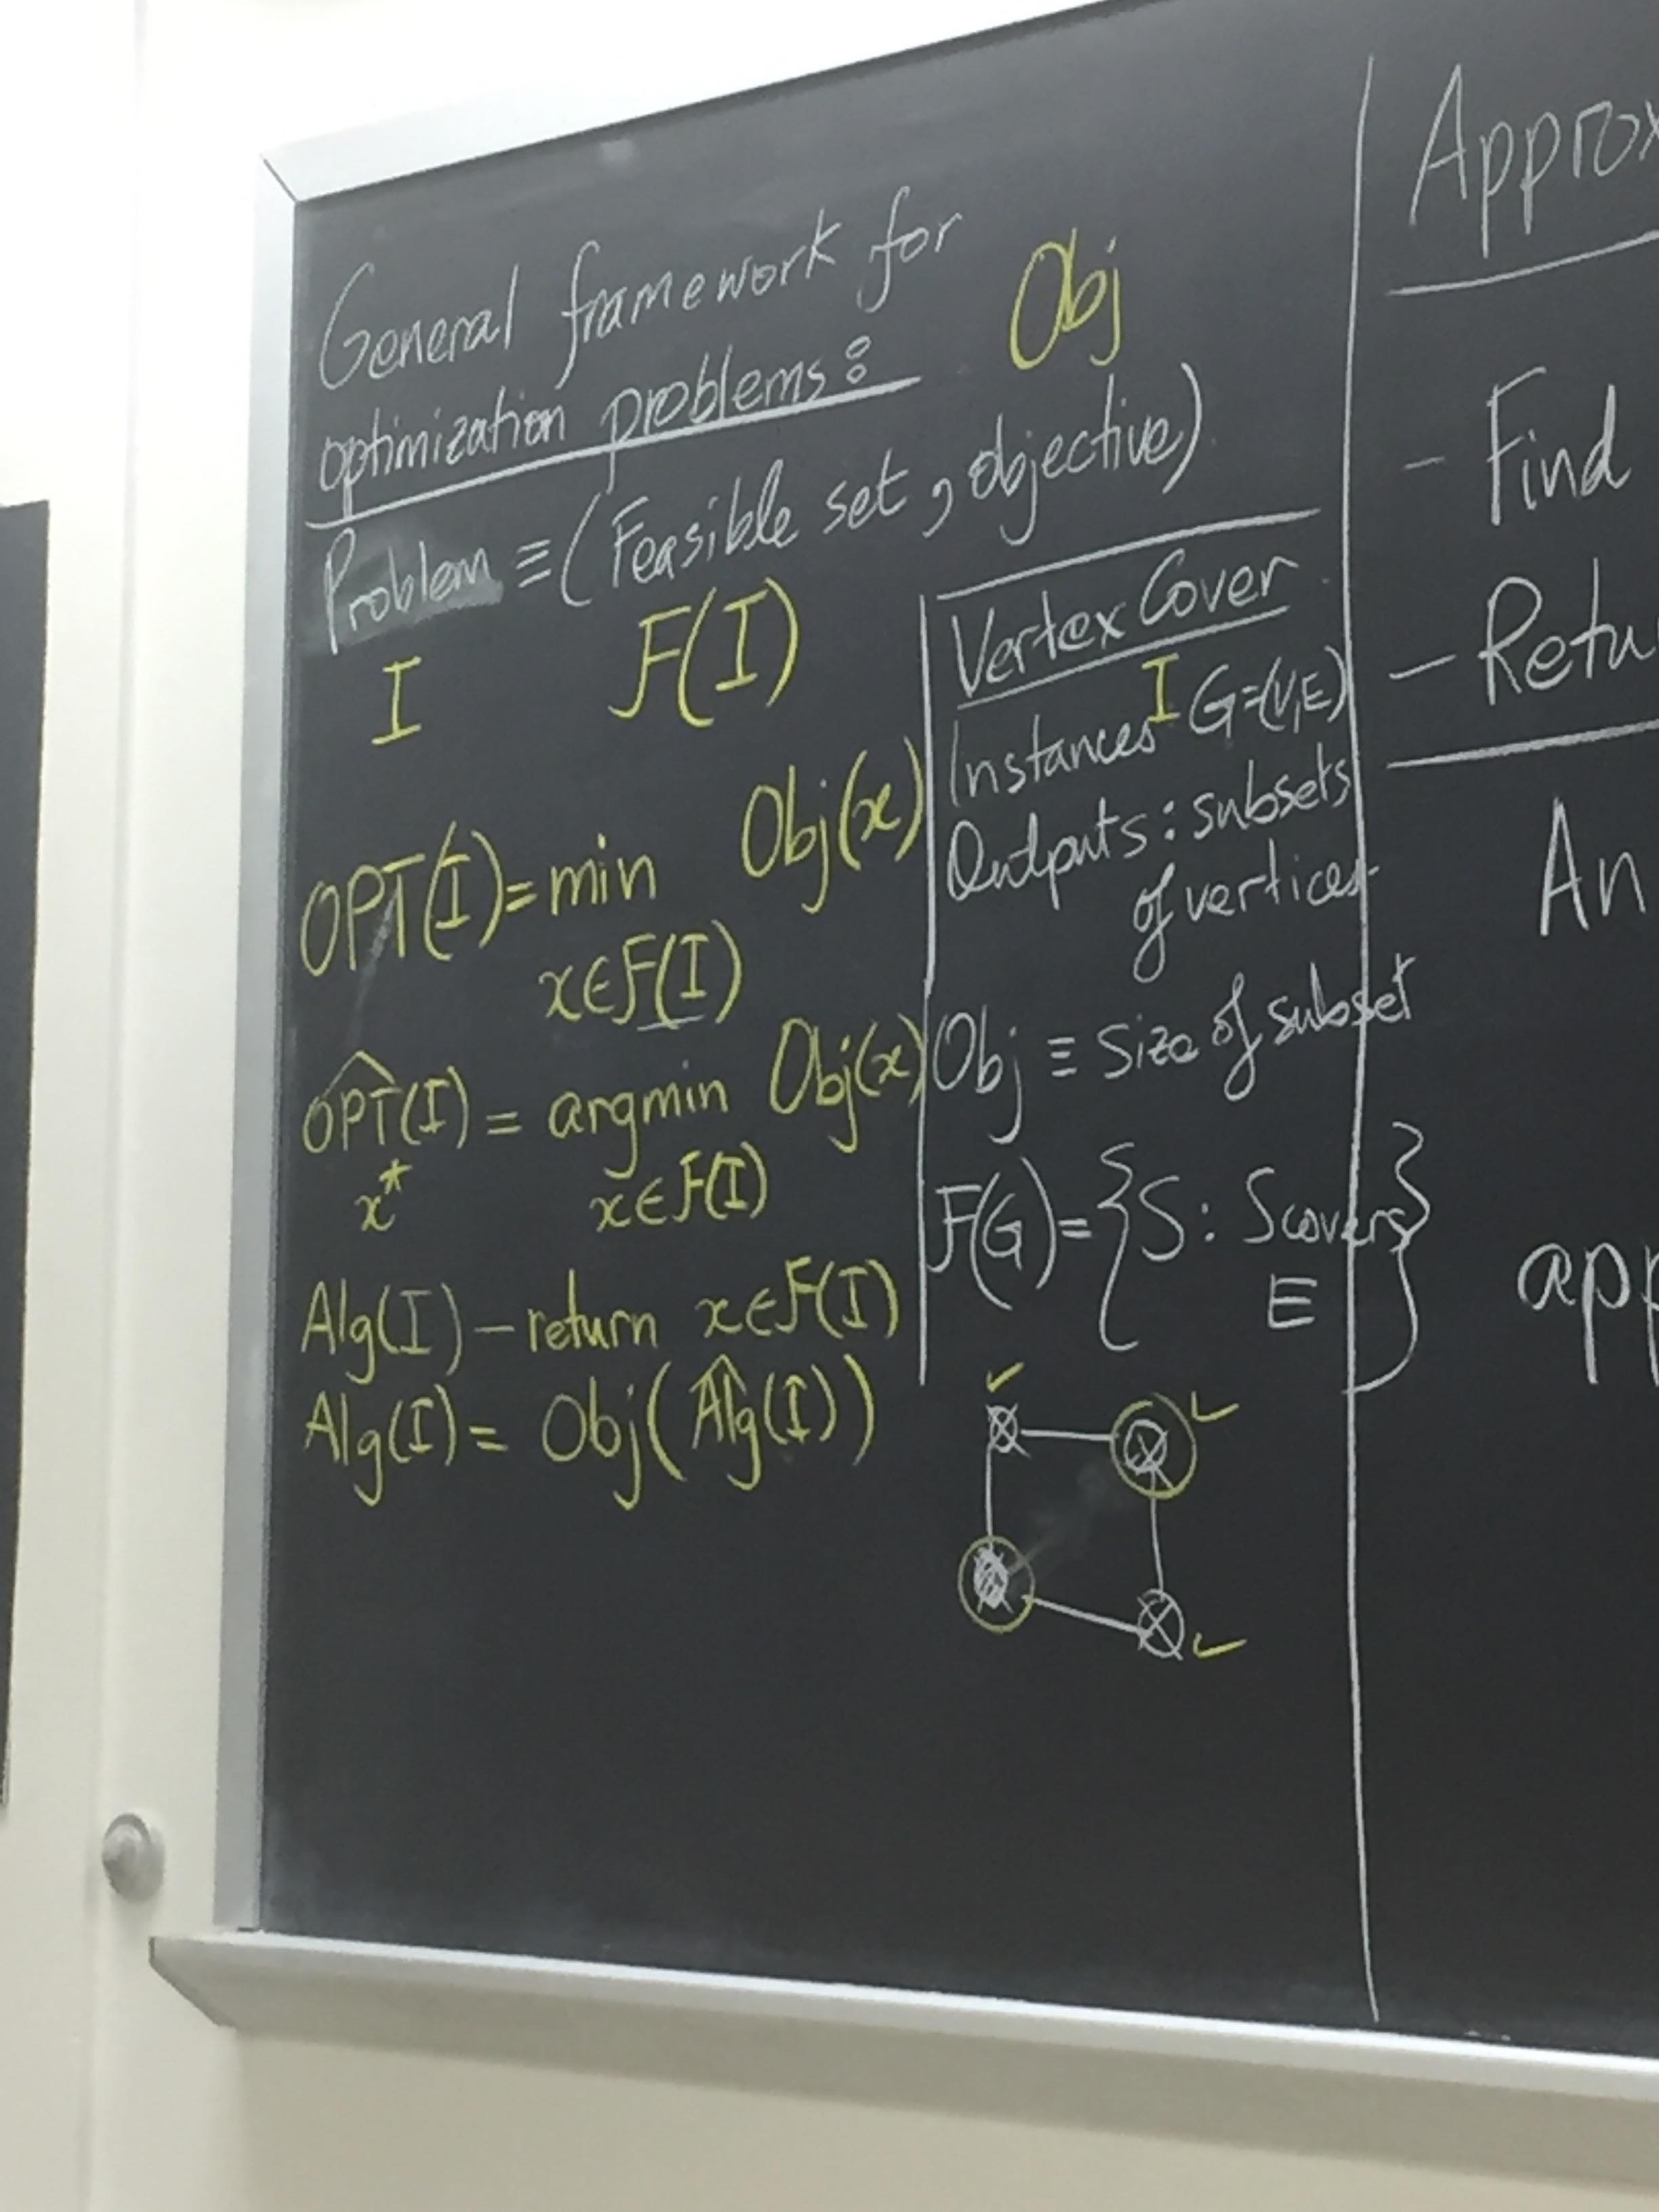 General framework for
optimization problems:
Obj
Problem ≡ (Feasible set, objective)
I F(I)
OPT(I) = min Obj(x)
x∈F(I)
ÔPT(I) = argmin Obj(x)
x* x∈F(I)
Alg(I) – return x∈F(I)
Alg(I) = Obj(Âlg(I))
Vertex Cover
Instances I G=(V,E)
Outputs: subsets
of vertices
Obj ≡ Size of subset
F(G) = {S: S covers
E}
Approx
- Find
- Retu
An
app